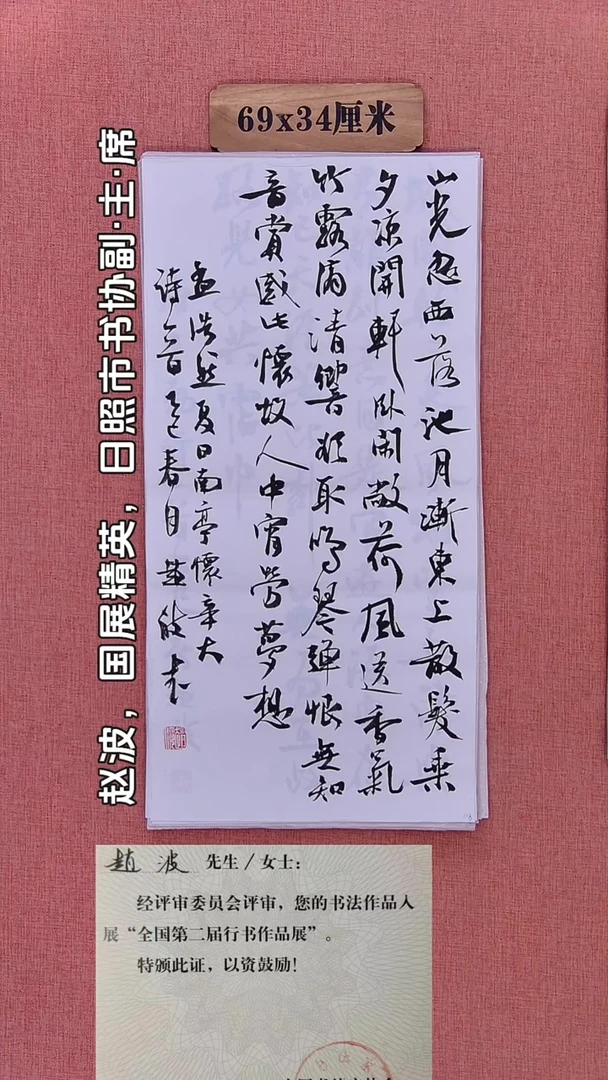 69x34厘米
山光忽西落池月漸東上散髮乘
夕凉開軒卧閑敞荷風送香氣
竹露滴清響欲取鳴琴彈恨無知
音賞感此懷故人中宵勞夢想
孟浩然夏日南亭懷辛大
詩一首乙巳春月趙波書
赵波，国展精英，日照市书协副·主·席
趙波 先生/女士：
经评审委员会评审，您的书法作品入
展“全国第二届行书作品展”。
特颁此证，以资鼓励！